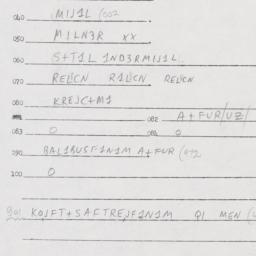 040 MIJ1L /002
050 MILN3R XX
060 S+T1L 1ND3RMIJ1L
070 RELICN R1LICN RELICN
080 KREJC+M1
082 A+FUR/UZ/
083 0 084 0
090 BAL1BUSF1N1M A+FUR
100 0
901 KOJFT+SAFTREJF1N1M QI MEN